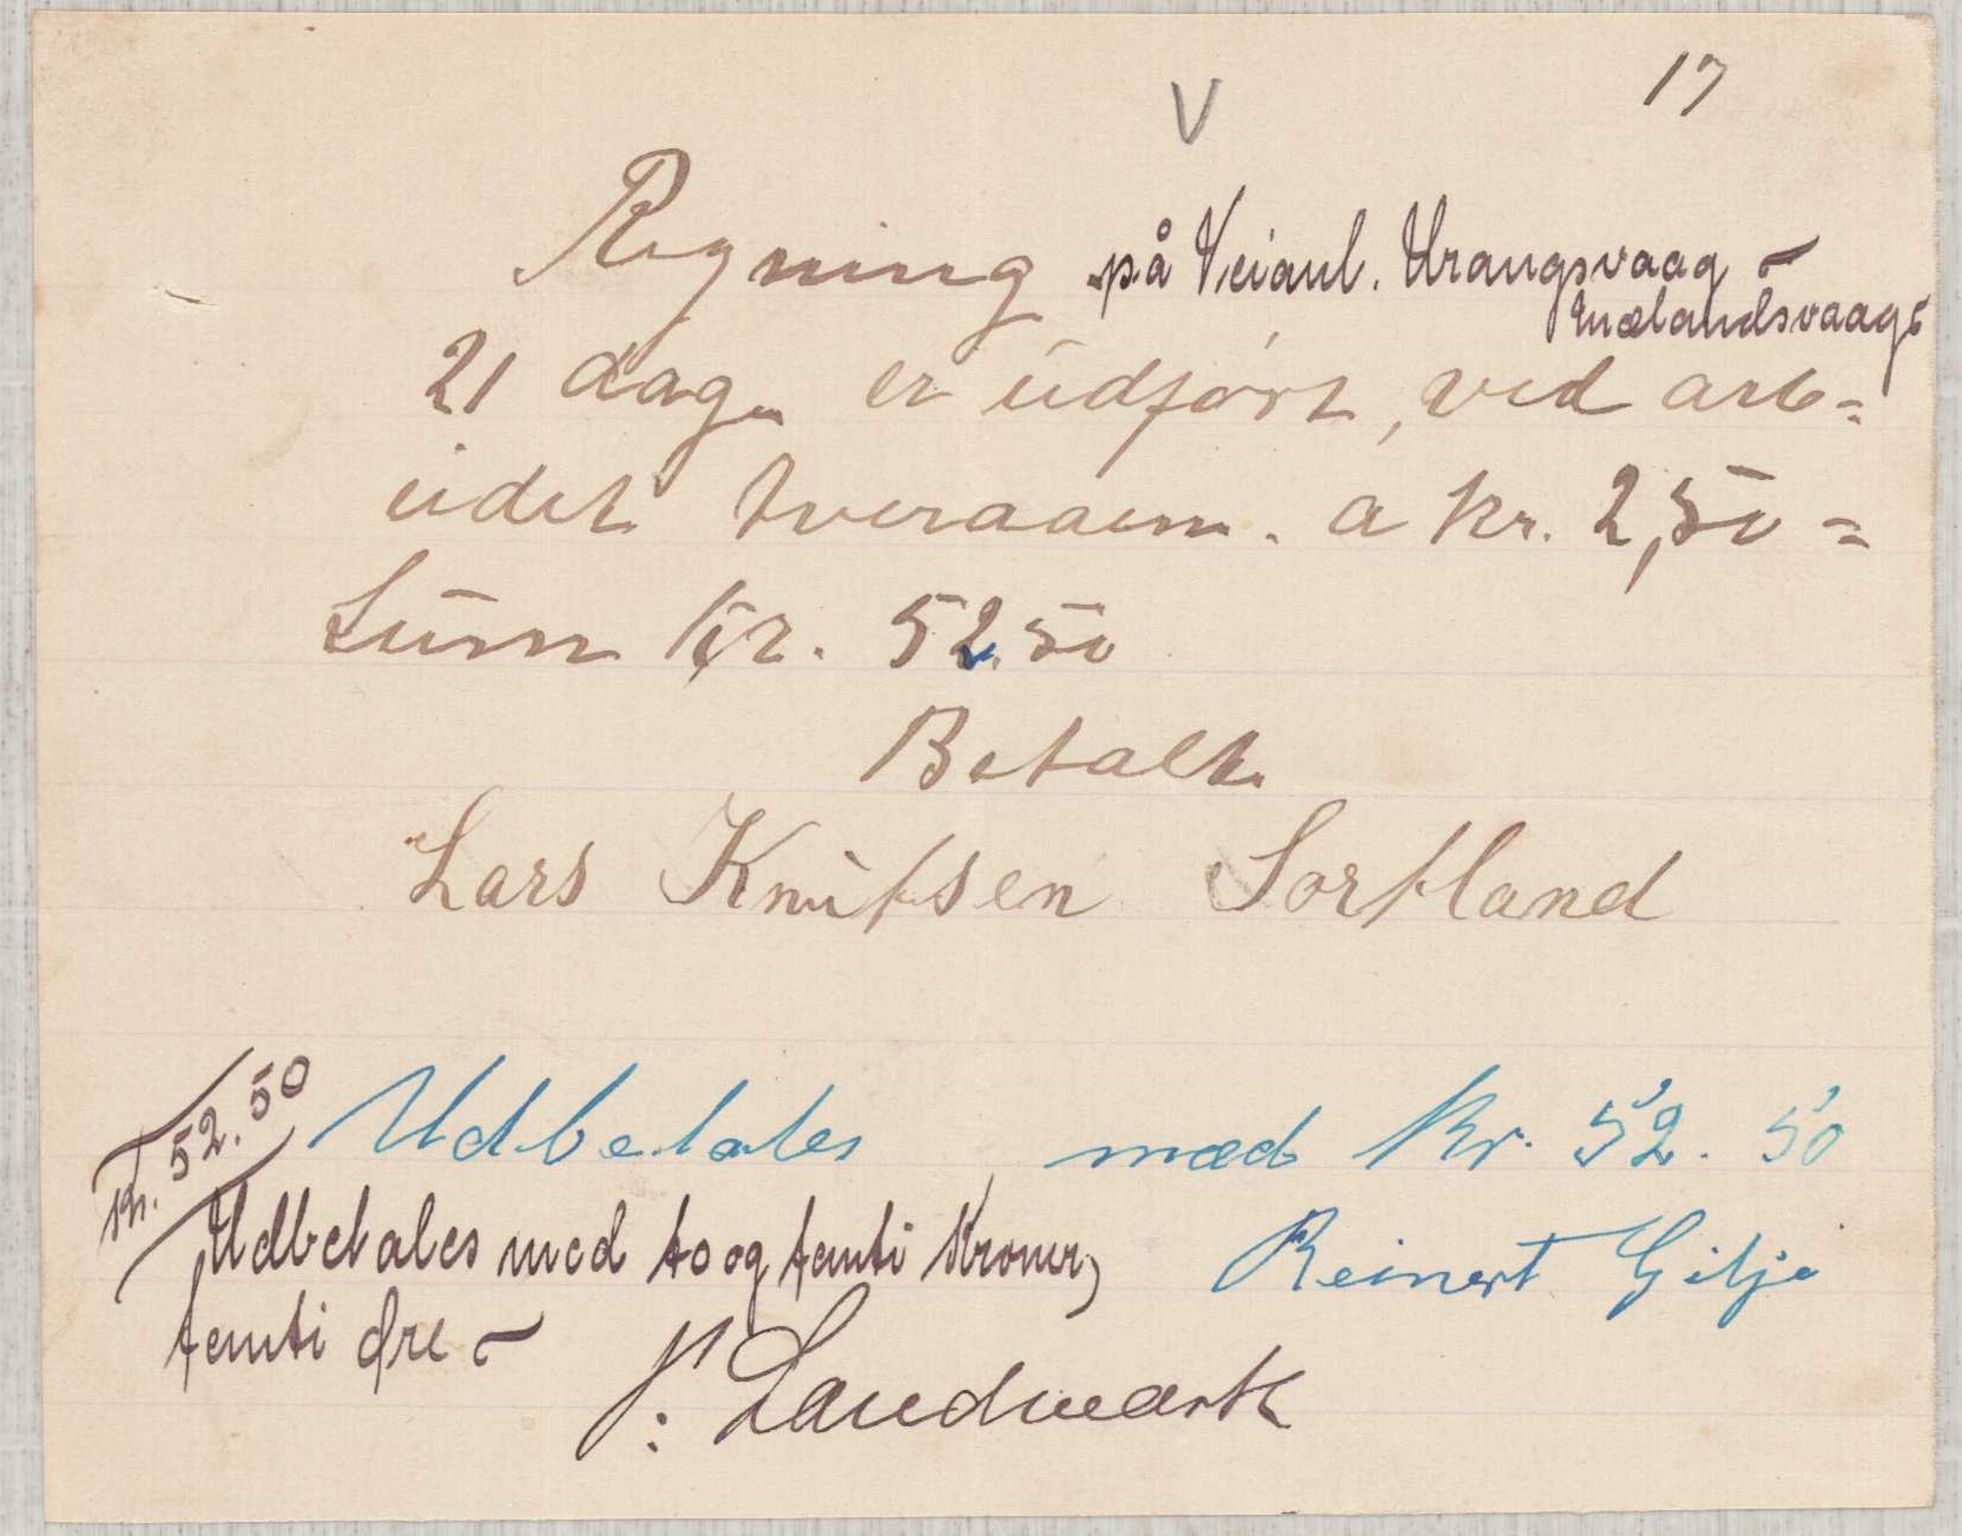 17
V
Regning på Veianl. Urangsvaag –
Mælandsvaag
21 dage er üdført, ved arb=
eidet tveraaen. a Kr. 2,50 =
Süm Kr. 52.50
Betalt.
Lars Knütsen Sortland
Kr. 52.50
Udbetales med Kr. 52.50
Reinert Gilje
Udbetales med to og femti Kroner,
femti Øre –
Landmark